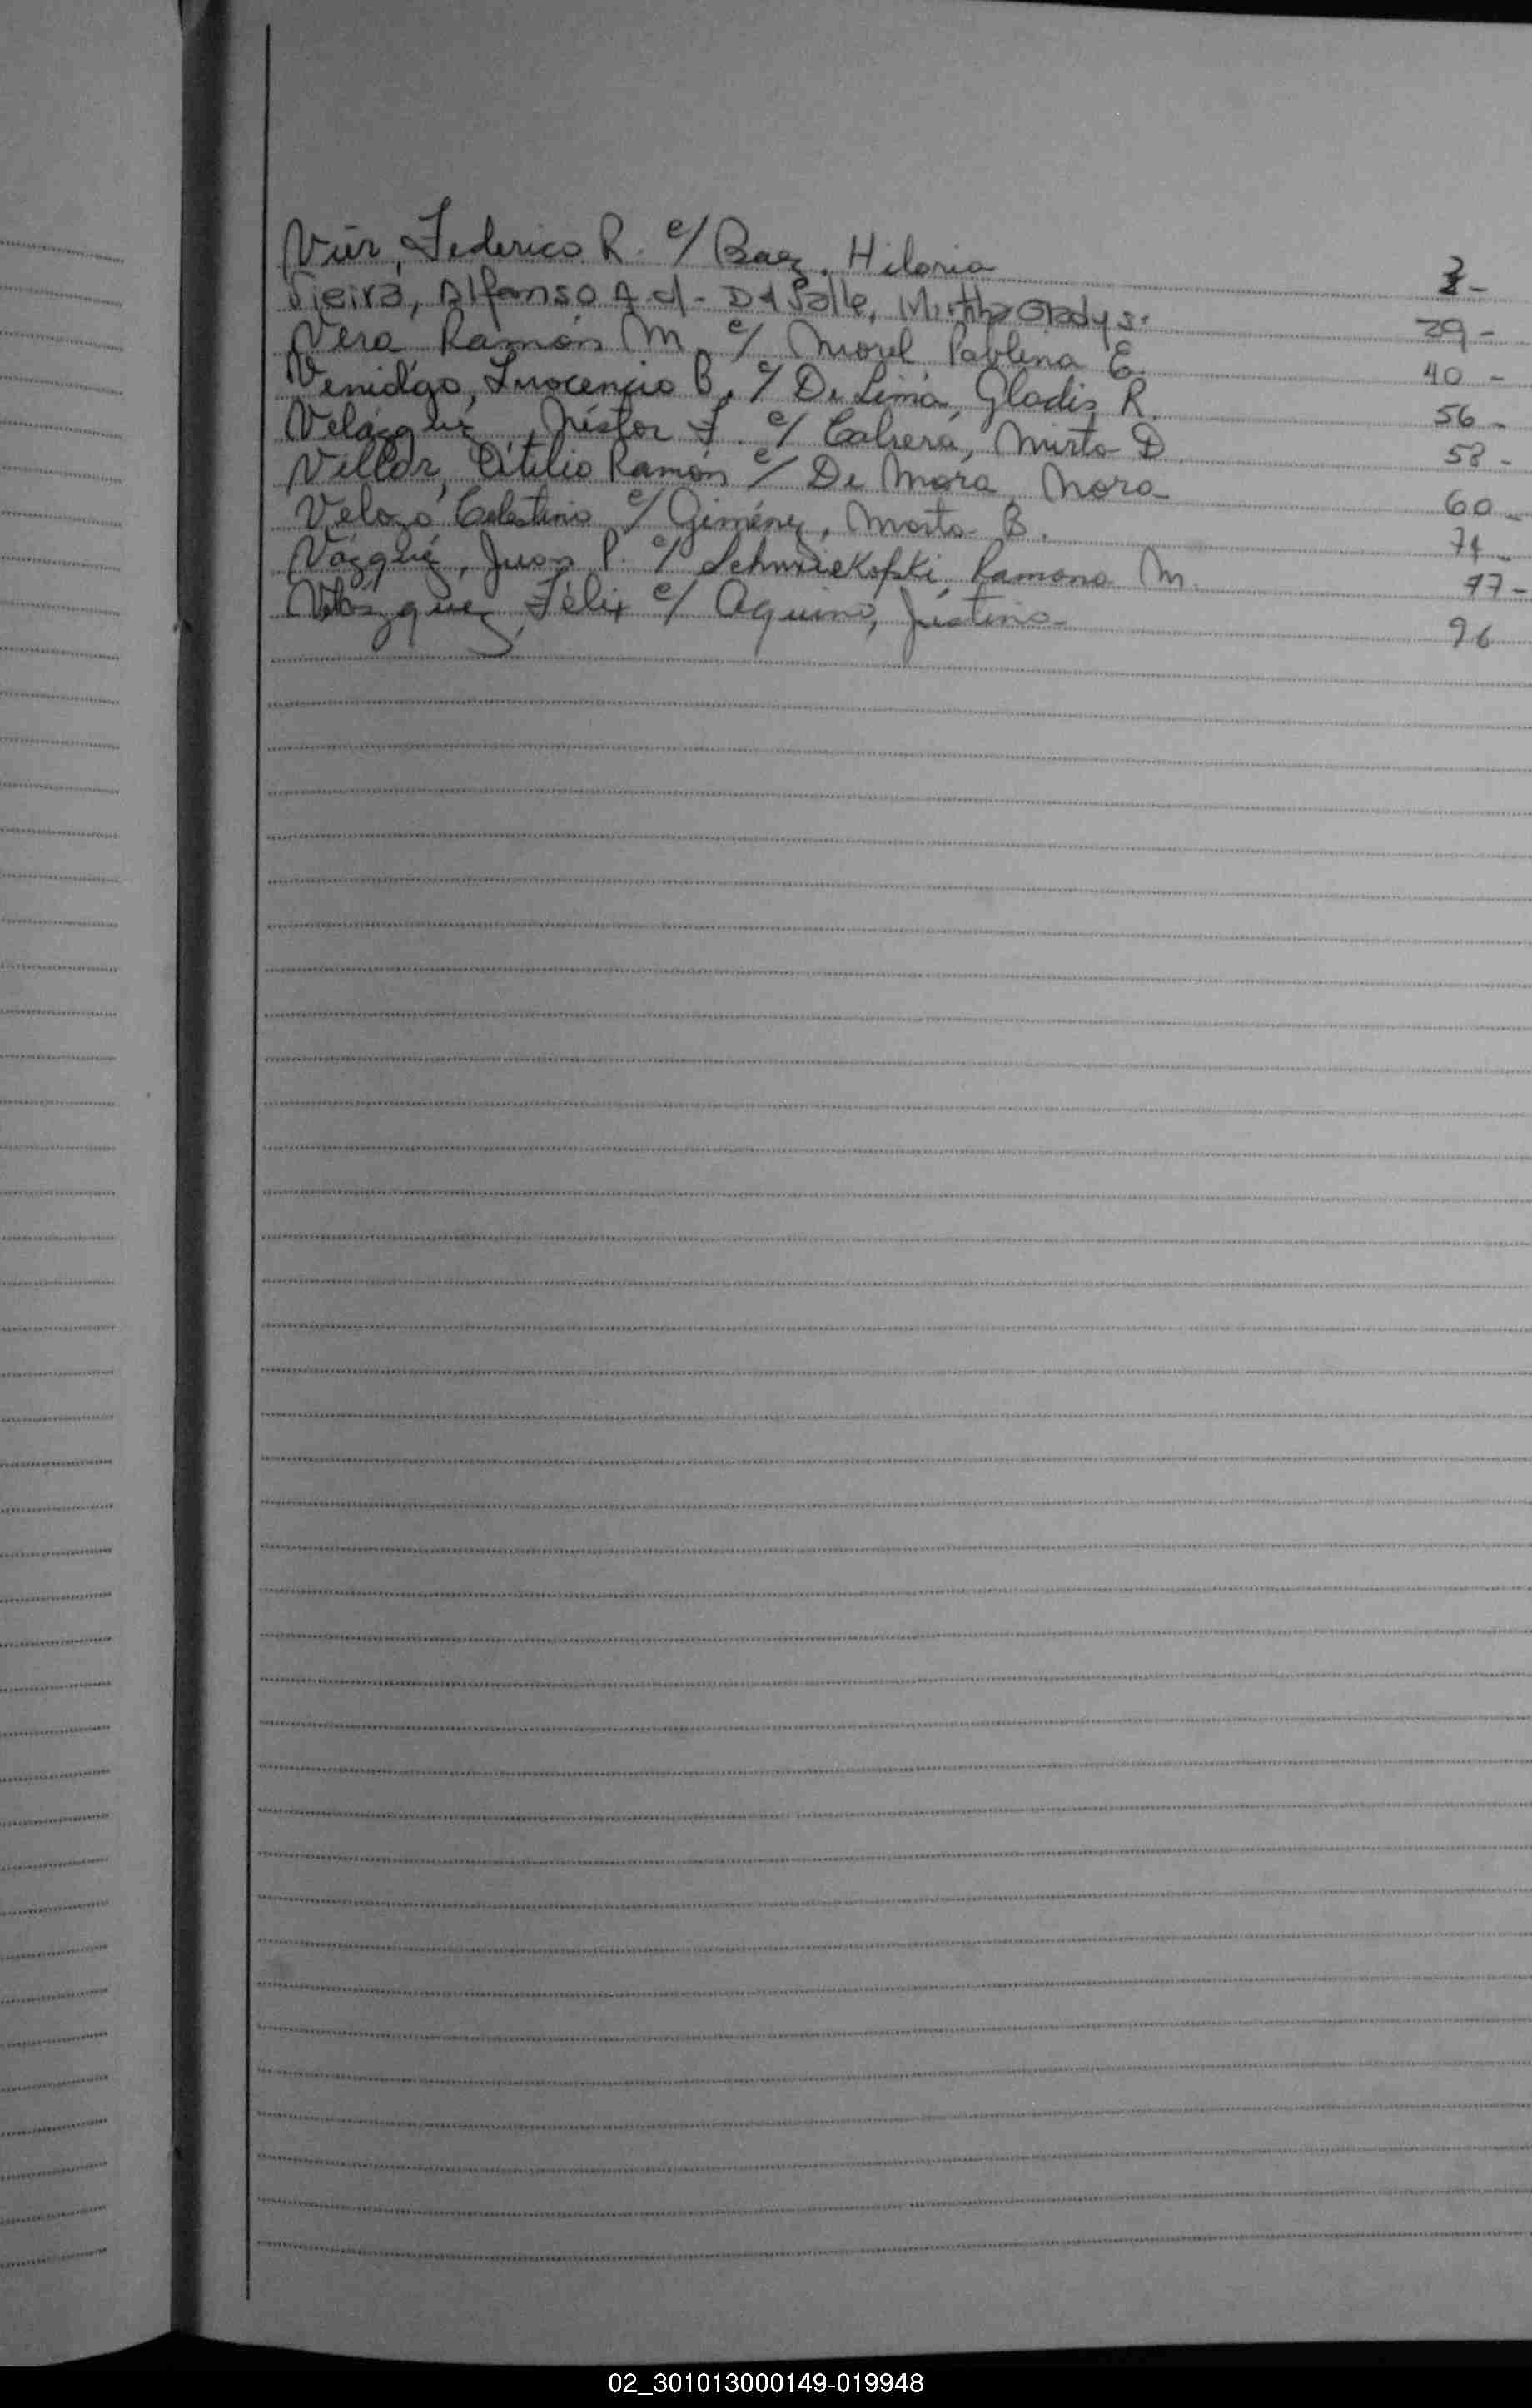 Vier, Federico R. c/ Baez, Hilaria 3-
Vieira, Alfonso A. c/- Da Salle, Mirtha Gladys. 29-
Vera, Ramón M. c/ Morel, Pablina E. 40-
Venialgo, Inocencio B. c/ De Lima, Gladis R. 56-
Velázquez, Néstor F. c/ Cabrera, Mirta D. 58-
Villar, Atilio Ramón c/ De Mora, Nora 60-
Velozo, Celestino c/ Giménez, Marta B. 74-
Vázquez, Juan P. c/ Ramona M. 77-
Velázquez, Félix c/ Aquino, Justina 96
02_301013000149-019948